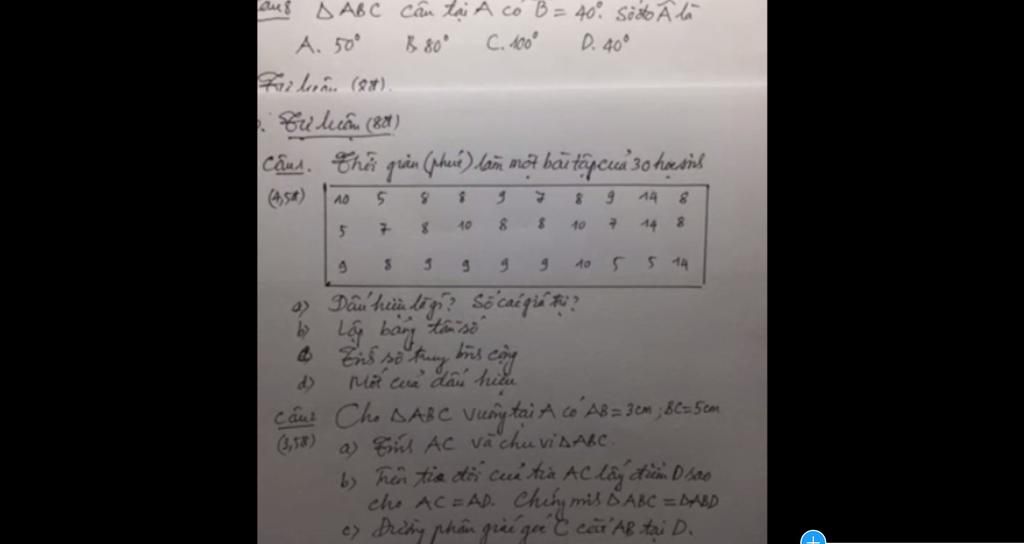 Câu 8 △ABC cân tại A có B̂ = 40°. Số đo Â là
A. 50° B. 80° C. 100° D. 40°
Tự luận (8đ).
Tự luận (8đ)
Câu 1. Thời gian (phút) làm một bài tập của 30 học sinh
(4,5đ) 10 5 8 8 9 7 8 9 14 8
5 7 8 10 8 8 10 7 14 8
9 8 9 9 9 9 10 5 5 14
a) Dấu hiệu là gì? Số các giá trị?
b) Lập bảng tần số
c) Tính số trung bình cộng
d) Mốt của dấu hiệu
Câu 2 Cho △ABC vuông tại A có AB = 3cm; BC = 5cm
(3,5đ) a) Tính AC và chu vi △ABC.
b) Trên tia đối của tia AC lấy điểm D sao
cho AC = AD. Chứng minh △ABC = △ABD
c) Đường phân giác góc C cắt AB tại D.